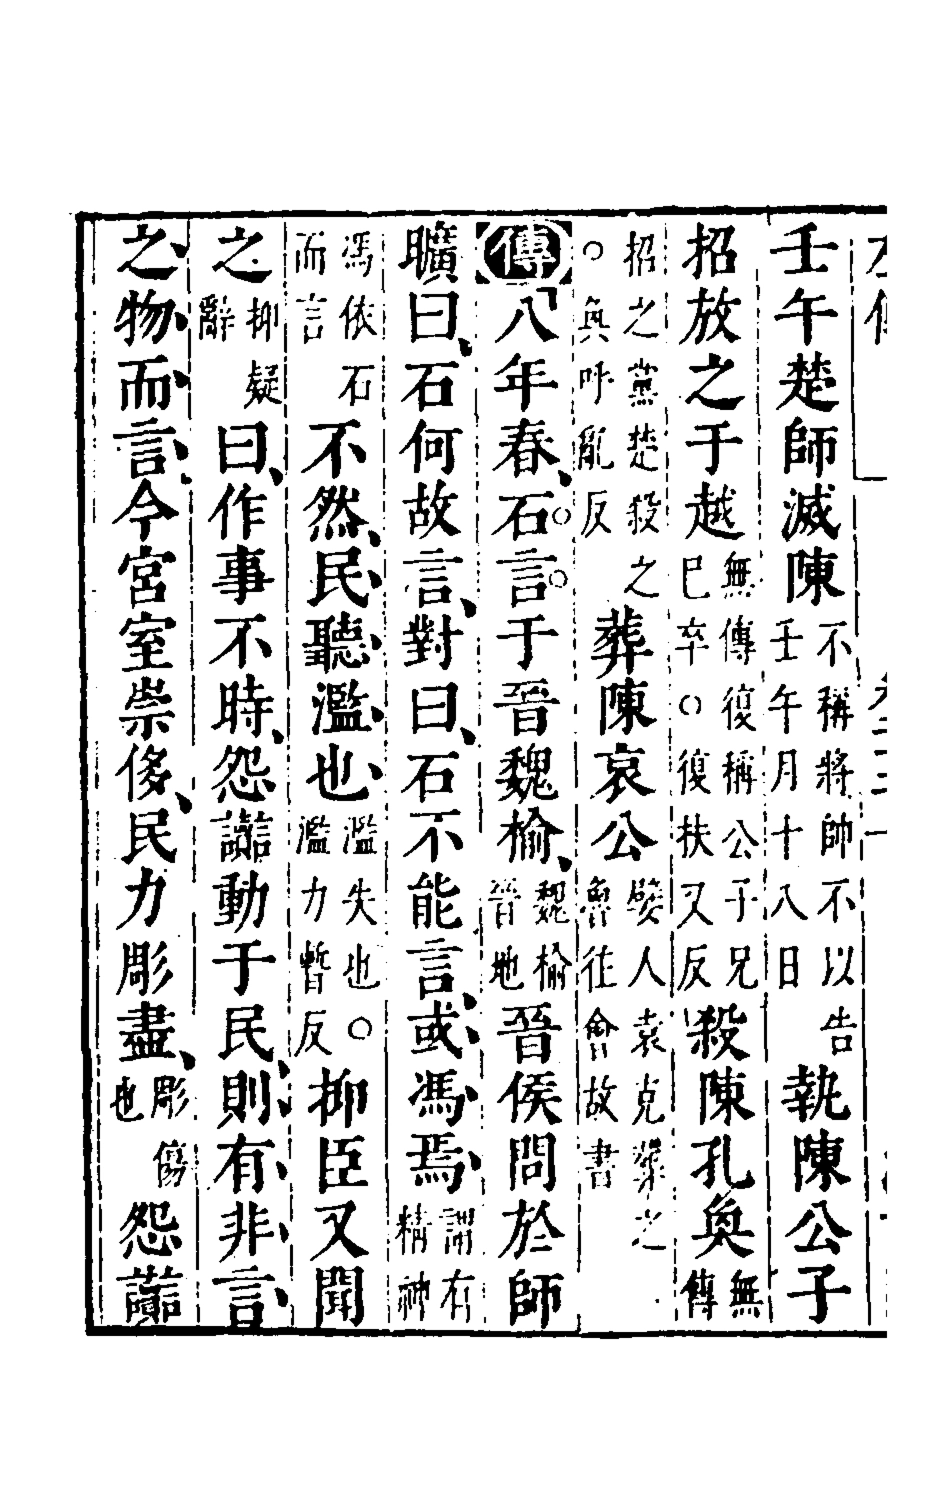 壬午楚師滅陳不稱將帥不以告壬午月十八日執陳公子
招放之于越無傳復稱公子兄巳卒○復扶又反殺陳孔奐無傳
招之黨楚殺之○奐呼亂反葬陳哀公嬖人袁克葬之魯往會故書
傳八年春、石言于晉魏榆、魏榆晉地晉侯問於師
曠曰、石何故言、對曰、石不能言、或馮焉、謂有精神
馮依石而言不然、民聽濫也、濫失也○濫力暫反抑臣又聞
之抑疑辭曰、作事不時、怨讟動于民、則有非言
之物而言、今宮室崇侈、民力彫盡、彫傷也怨讟